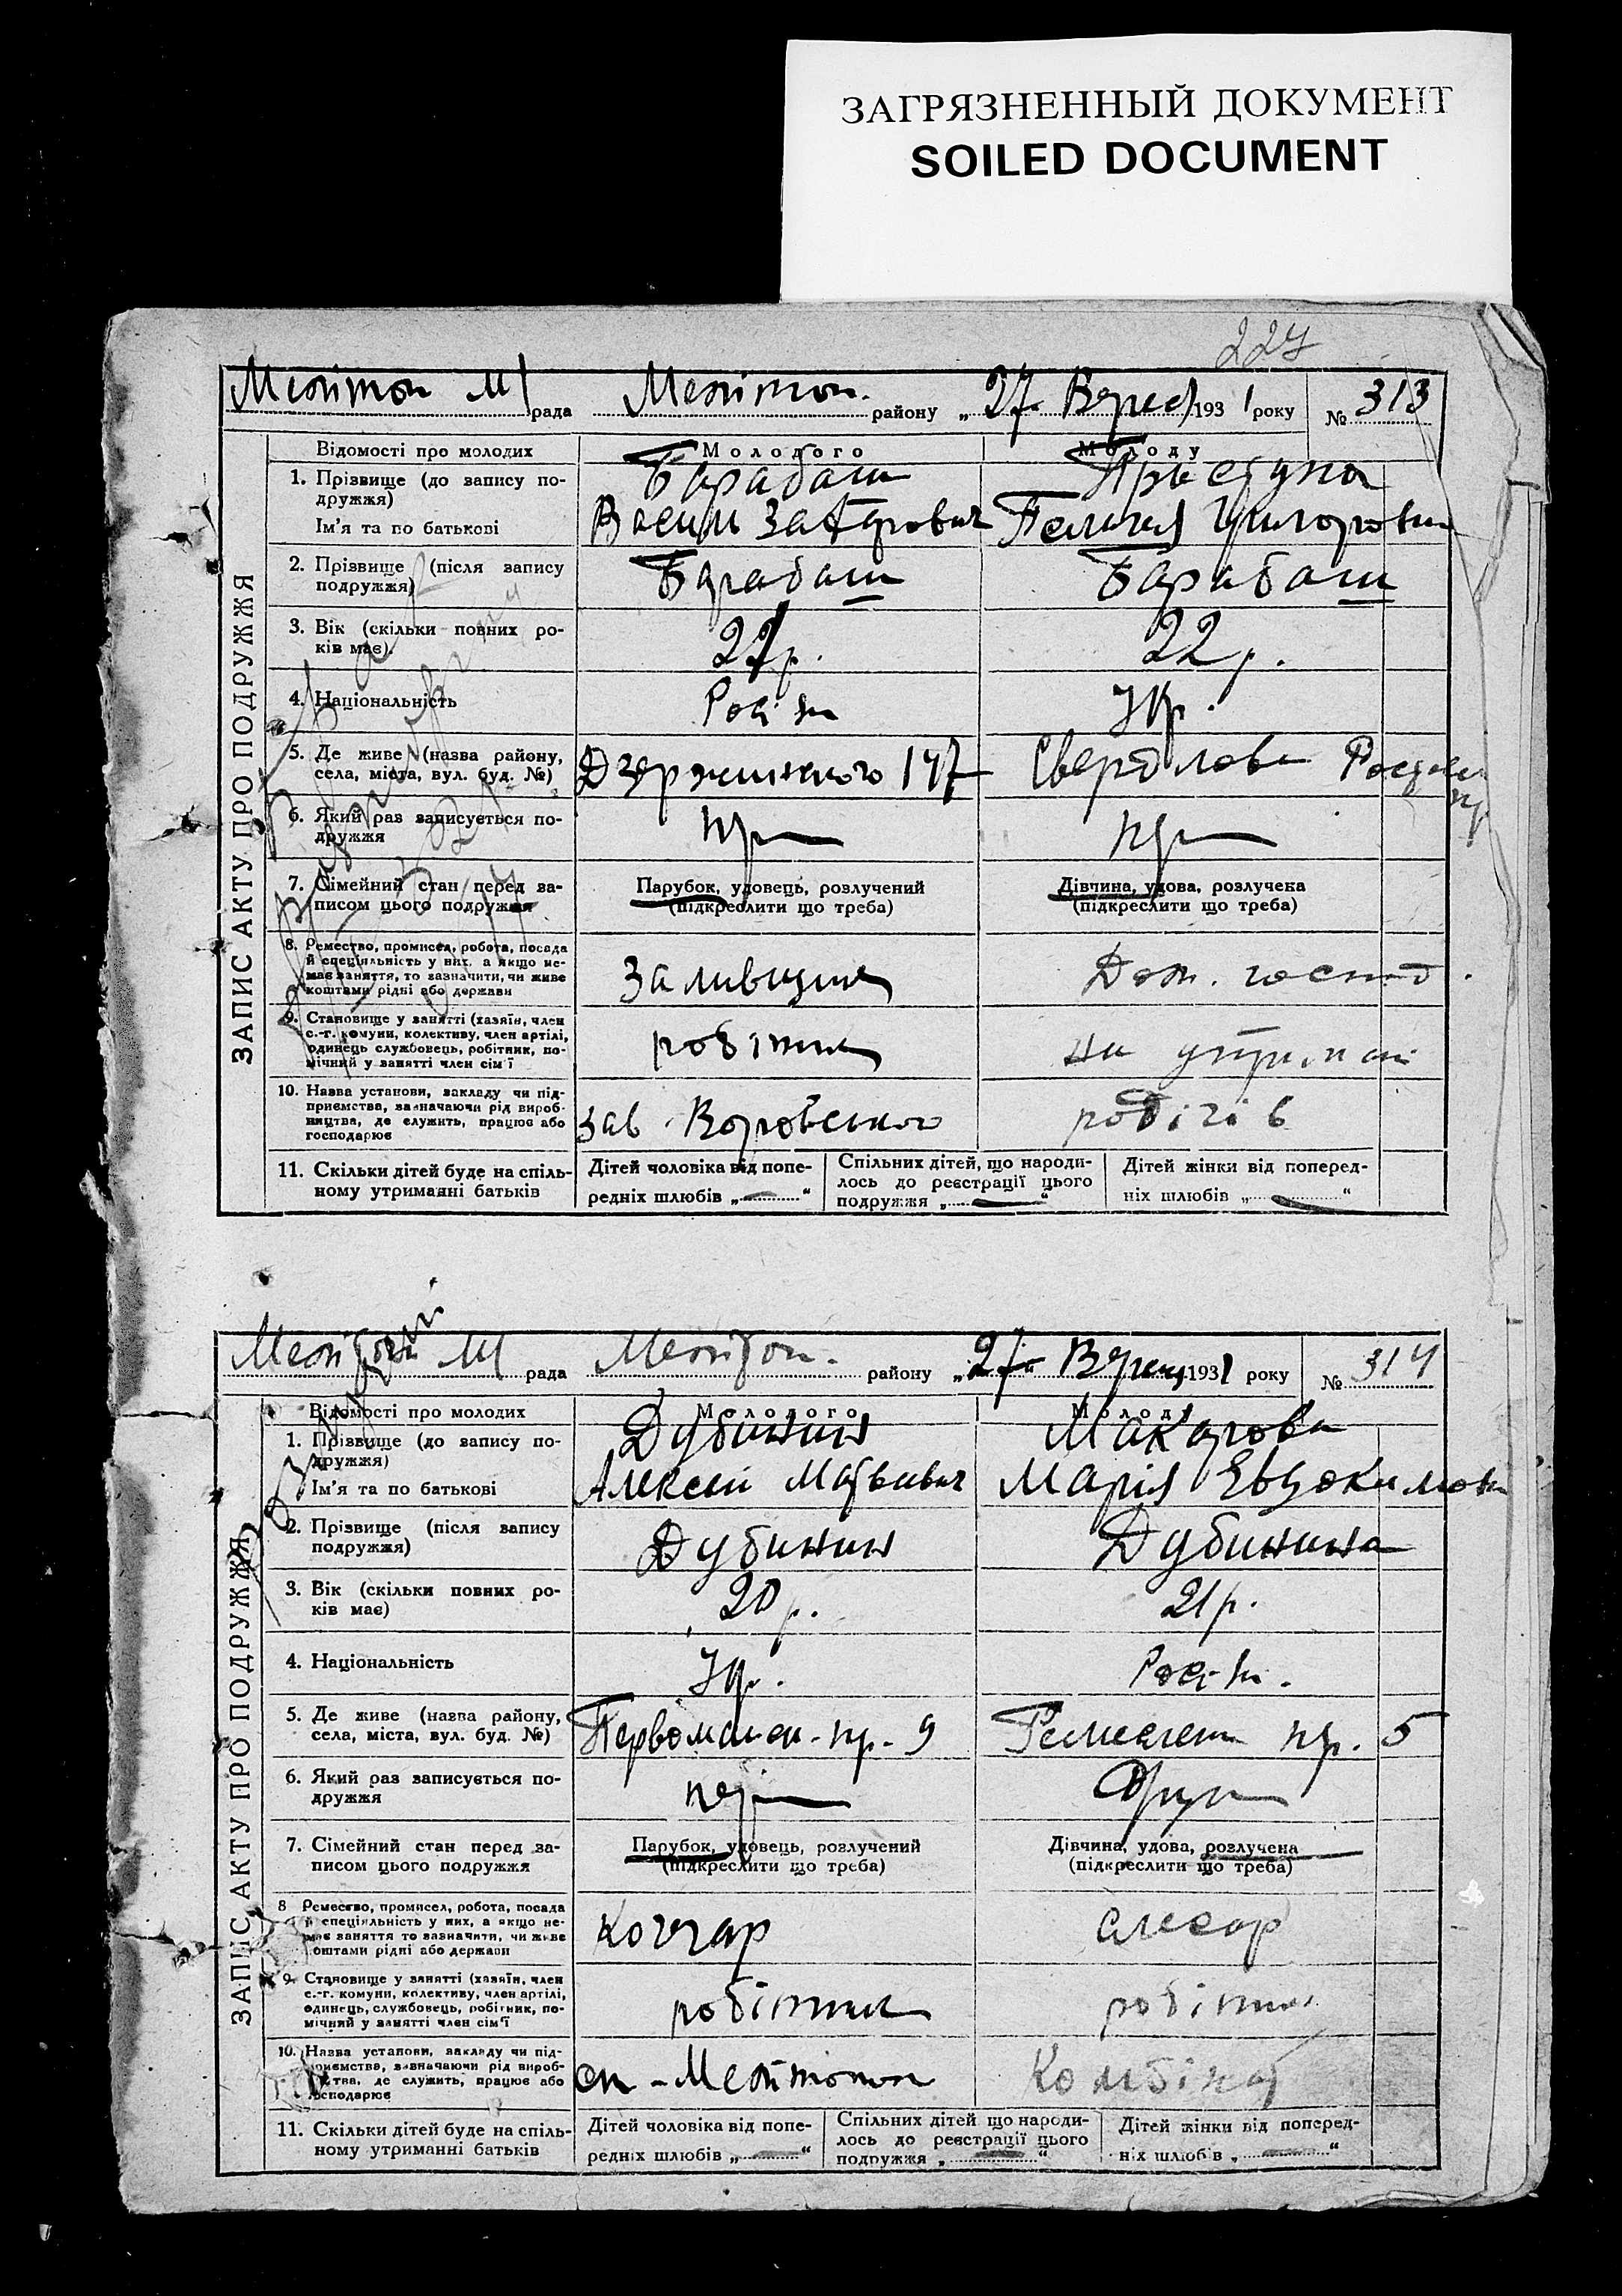 ЗАГРЯЗНЕННЫЙ ДОКУМЕНТ
SOILED DOCUMENT
227
рада Мелітоп. району „27" Верес 1931 року № 313
ЗАПИС АКТУ ПРО ПОДРУЖЖЯ
Відомості про молодих Молодого Молоду
1. Прізвище (до запису по-
дружжя) Барабаш
Ім'я та по батькові Василь Захарович Пелагея Григоровна
2. Прізвище (після запису
подружжя) Барабаш Барабаш
3. Вік (скільки повних ро-
ків має). 22 р.
4. Національність Рос. Укр.
5. Де живе (назва району,
села, міста, вул. буд. №) Дзержинського 147 Свердлова
6. Який раз записується по-
дружжя
7. Сімейний стан перед за-
писом цього подружжя
Парубок, удовець, розлучений
(підкреслити що треба)
Дівчина, удова, розлучена
(підкреслити що треба)
8. Ремество, промисел, робота, посада
й спеціяльність у них, а якщо не-
має заняття, то зазначити, чи живе
коштами рідні або держави
Заливщик Дом. госпо
9. Становище у занятті (хазяїн, член
с.-г. комуни, колективу, член артілі,
одинець службовець, робітник, по-
мічний у занятті член сім'ї
робітник на утриман
10. Назва установи, закладу чи під-
приємства, зазначаючи рід вироб-
ництва, де служить, працює або
господарює
зав. Воровського родічів
11. Скільки дітей буде на спіль-
ному утриманні батьків
Дітей чоловіка від попе-
редніх шлюбів „ — "
Спільних дітей, що народи-
лось до реєстрації цього
подружжя „ — "
Дітей жінки від поперед-
ніх шлюбів „ — "
рада Мелітоп. району „27" Верес 1931 року № 314
ЗАПИС АКТУ ПРО ПОДРУЖЖЯ
Відомості про молодих Молодого Молоду
1. Прізвище (до запису по-
дружжя) Дубинин Макарова
Ім'я та по батькові Алексей Матвеевич Марія Евдокимовн
2. Прізвище (після запису
подружжя) Дубинин Дубинина
3. Вік (скільки повних ро-
ків має) 20 р. 21 р.
4. Національність Укр. Рос.
5. Де живе (назва району,
села, міста, вул. буд. №) Первомайск. пр. 9 пр. 5
6. Який раз записується по-
дружжя
7. Сімейний стан перед за-
писом цього подружжя
Парубок, удовець, розлучений
(підкреслити що треба)
Дівчина, удова, розлучена
(підкреслити що треба)
8 Ремество, промисел, робота, посада
й спеціяльність у них, а якщо не-
має заняття то зазначити, чи живе
коштами рідні або держави
Кочегар слесар
9. Становище у занятті (хазяїн, член
с.-г. комуни, колективу, член артілі,
одинець, службовець, робітник, по-
мічний у занятті член сім'ї
робітник робітник
10. Назва установи, закладу чи під-
приємства, зазначаючи рід вироб-
ництва, де служить, працює або
господарює
Комбінат
11. Скільки дітей буде на спіль-
ному утриманні батьків
Дітей чоловіка від попе-
редніх шлюбів „ — "
Спільних дітей що народи-
лось до реєстрації цього
подружжя „ — "
Дітей жінки від поперед-
ніх шлюбів „ — "